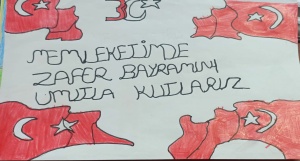 30
MEMLEKETİMDE
ZAFER BAYRAMINI
UMUTLA KUTLARIZ